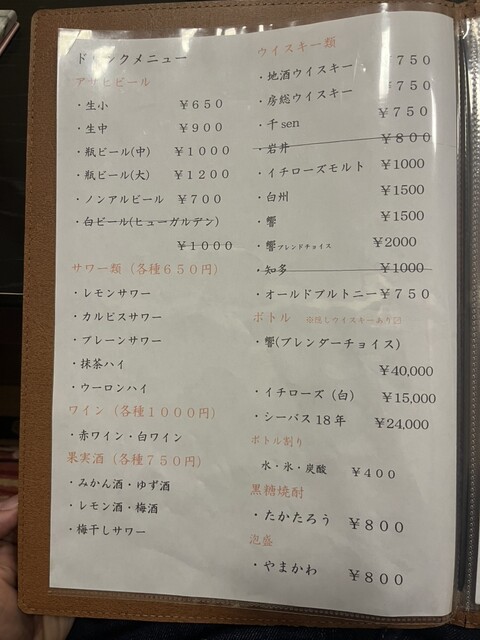 ドリンクメニュー
アサヒビール
・生小 ￥650
・生中 ￥900
・瓶ビール(中) ￥1000
・瓶ビール(大) ￥1200
・ノンアルビール ￥700
・白ビール(ヒューガルデン)
￥1000
サワー類（各種650円）
・レモンサワー
・カルピスサワー
・プレーンサワー
・抹茶ハイ
・ウーロンハイ
ワイン（各種1000円）
・赤ワイン・白ワイン
果実酒（各種750円）
・みかん酒・ゆず酒
・レモン酒・梅酒
・梅干しサワー
ウイスキー類
・地酒ウイスキー ￥750
・房総ウイスキー ￥750
・千sen ￥750
・岩井 ￥800
・イチローズモルト ￥1000
・白州 ￥1500
・響 ￥1500
・響ブレンドチョイス ￥2000
・知多 ￥1000
・オールドプルトニー ￥750
ボトル ※隠しウイスキーあり
・響(ブレンダーチョイス)
￥40,000
・イチローズ（白） ￥15,000
・シーバス18年 ￥24,000
ボトル割り
水・氷・炭酸 ￥400
黒糖焼酎
・たかたろう ￥800
泡盛
・やまかわ ￥800